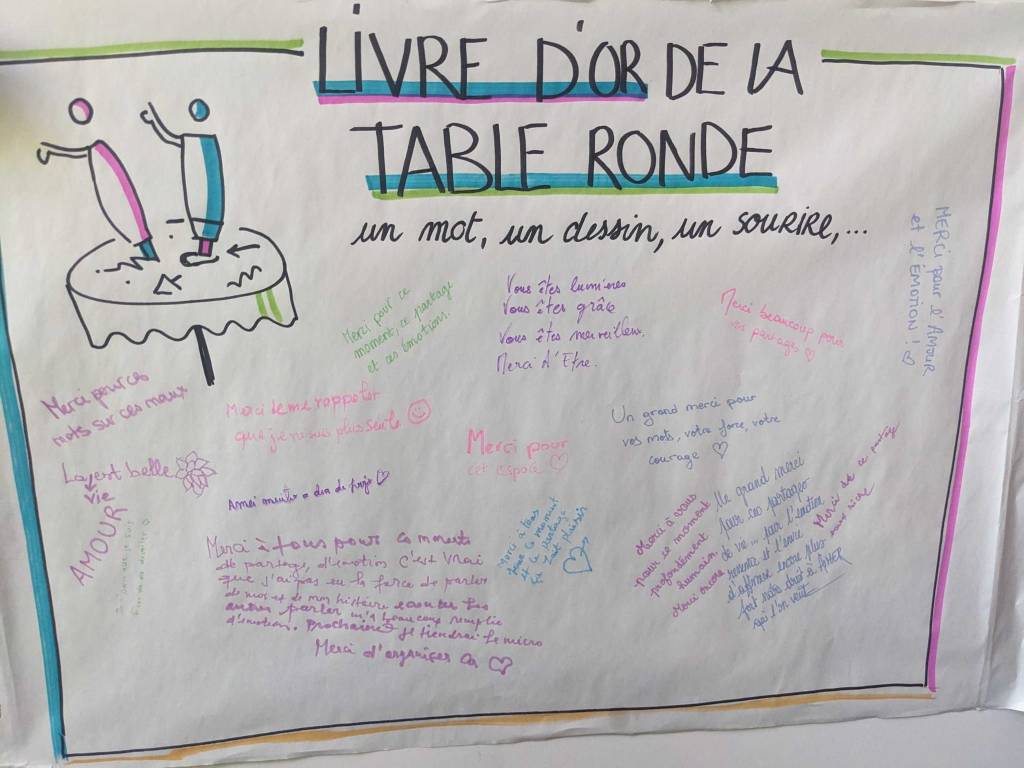 LIVRE D'OR DE LA
TABLE RONDE
un mot, un dessin, un sourire,...
MERCI pour l'AMOUR
et l'ÉMOTION !
Merci pour ce
moment, ce partage
et ces émotions.
Vous êtes lumières
Vous êtes grâce
Vous êtes merveilleux.
Merci d'Etre.
Merci beaucoup pour
vos partages
Merci pour ces
mots sur ces maux
Merci de me rappeler
que je ne suis plus seule
Merci pour
cet espace
Un grand merci pour
vos mots, votre force, votre
courage
La vie est belle
AMOUR
Merci à tous pour ce moments
de partage, d'émotion c'est vrai
que j'ai pas eu la force de parler
de moi et de mon histoire écouter les
autres parler m'a beaucoup remplie
d'émotion. prochaine je tiendrai le micro
Merci d'organiser ça
Merci à tous
pour ce moment
et ce partage
Merci à vous
pour ce moment
profondément
humain
Merci encore
Un grand merci
pour ces partages
de vie... pour l'émotion
revenue et l'envie
d'affirmer encore plus
fort notre droit à AIMER
qui l'on veut
Merci de ce partage